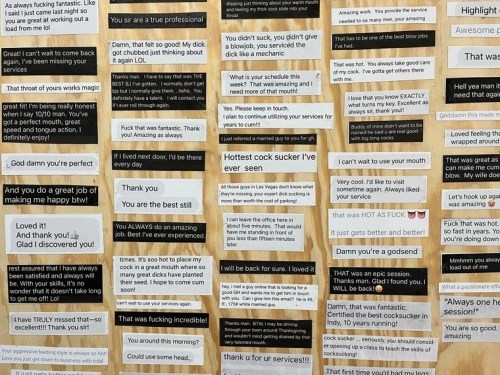 As always fucking fantastic. Like
I said I just came last night so
you are great at working out a
load from me lol
Great! I can't wait to come back
again, I've been missing your
services
That throat of yours works magic
great fit! I'm being really honest
when I say 10/10 man. You've
got a perfect mouth, great
speed and tongue action. I
definitely enjoy!
God damn you're perfect
And you do a great job of
making me happy btw!
Loved it!
And thank you!
Glad I discovered you!
rest assured that I have always
been satisfied and always will
be. With your skills, it's no
wonder that it doesn't take long
to get me off! Lol
I have TRULY missed that—so
excellent!!! Thank you sir!
Your aggressive feeding style is always so hot!
Love you just get down to business with total
You sir are a true professional
Damn, that felt so good! My dick
got chubbed just thinking about
it again LOL
Thanks man. I have to say that was THE
BEST BJ I've gotten. I normally don't get
his but I normally give them ...hehe. You
definitely have a talent. I will contact you
if I ever roll through again.
Fuck that was fantastic. Thank
you! Amazing as always
If I lived next door, I'd be there
every day
Thank you
You are the best still
You ALWAYS do an amazing
job. Best I've ever experienced.
times. It's soo hot to place my
cock in a great mouth where so
many great dicks have planted
their seed. I hope to come cum
soon!
can't wait to use your services again.
That was fucking incredible!
You around this morning?
Could use some head.
dripping just thinking about your warm mouth
and feeling my thick cock slide into your
throat
You didn't suck, you didn't give
a blowjob, you serviced the
dick like a mechanic
What is your schedule this
week? That was amazing and I
need more of that mouth!
Yes. Please keep in touch.
I plan to continue utilizing your services for
years to cum!!!
I just referred a married guy to you for gh
Hottest cock sucker I've
ever seen
All those guys in Las Vegas don't know what
they're missing, your expert dick sucking is
more than worth the cost of parking!
I can leave the office here in
about five minutes. That would
have me standing in front of
you less than fifteen minutes
later.
I will be back for sure. I loved it
hey, i met a guy online that is looking for a
good SM and wants me to get him in touch
with you. Can I give him this email? he is 46,
Thanks man. BTW, I may be driving
through your town around Thanksgiving
and wouldn't mind getting drained by that
very talented mouth.
thank u for ur services!!!
Amazing work. You provide the service
needed to so many men, your amazing
That has to be one of the best blow jobs
I've had.
That was hot. You always take good care
of my cock. I've gotta get others there
with me.
I love that you know EXACTLY
what turns my key. Excellent as
always sir, thank you!!
Buddy of mine didn't want to be
named he said u are real good
with big long cocks
I can't wait to use your mouth
Very cool. I'd like to visit
sometime again. Always liked
your service
that was HOT AS FUCK
It just gets better and better!
Damn you're a godsend
THAT was an epic session.
Thanks man, Glad I found you. I
WILL be back!
Damn, that was fantastic.
Certified the best cocksucker in
Indy, 10 years running!
cock sucker ... seriously, you should consid
er opening up a class to teach the skills of
cocksucking!
That first time you'd had my legs
Highlight
Awesome
That was
Hell yea man it
need that again
Goddamn this made m
Loved feeling tha
wrapped around
That was great as
can make me cum
blow. My wife doe
Let's hook up aga
was amazing
Fuck that was hot.
so fast for years. Yo
you're doing down
Mmhmm you alway
load out of me
What a passionate
"Always one he
session!"
You are so good.
amazing